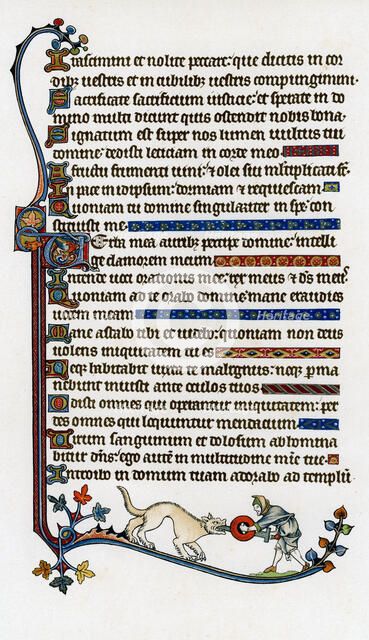 Irascimini et nolite peccare: que dicitis in cor
dibus vestris et in cubilibus vestris compungimini.
Sacrificate sacrificium iusticie: et sperate in do
mino multi dicunt quis ostendit nobis bona.
Signatum est super nos lumen vultus tui
domine: dedisti leticiam in corde meo
A fructu frumenti vini: et olei sui multiplicati st.
In pace in idipsum: dormiam et requiescam
Quoniam tu domine singulariter in spe: con
stituisti me.
Verba mea auribus percipe domine: intelli
ge clamorem meum
Intende voci orationis mee: rex meus et ds meus.
Quoniam ad te orabo domine: mane exaudies
vocem meam
Mane astabo tibi et videbo: quoniam non deus
volens iniquitatem tu es
Neq habitabit iuxta te malignus: neq perma
nebunt iniusti ante oculos tuos
Odisti omnes qui operantur iniquitatem: per
des omnes qui loquuntur mendacium
Virum sanguinum et dolosum abhomina
bitur dns: ego autem in multitudine mie tue
Introibo in domum tuam adorabo ad templum
Heritage